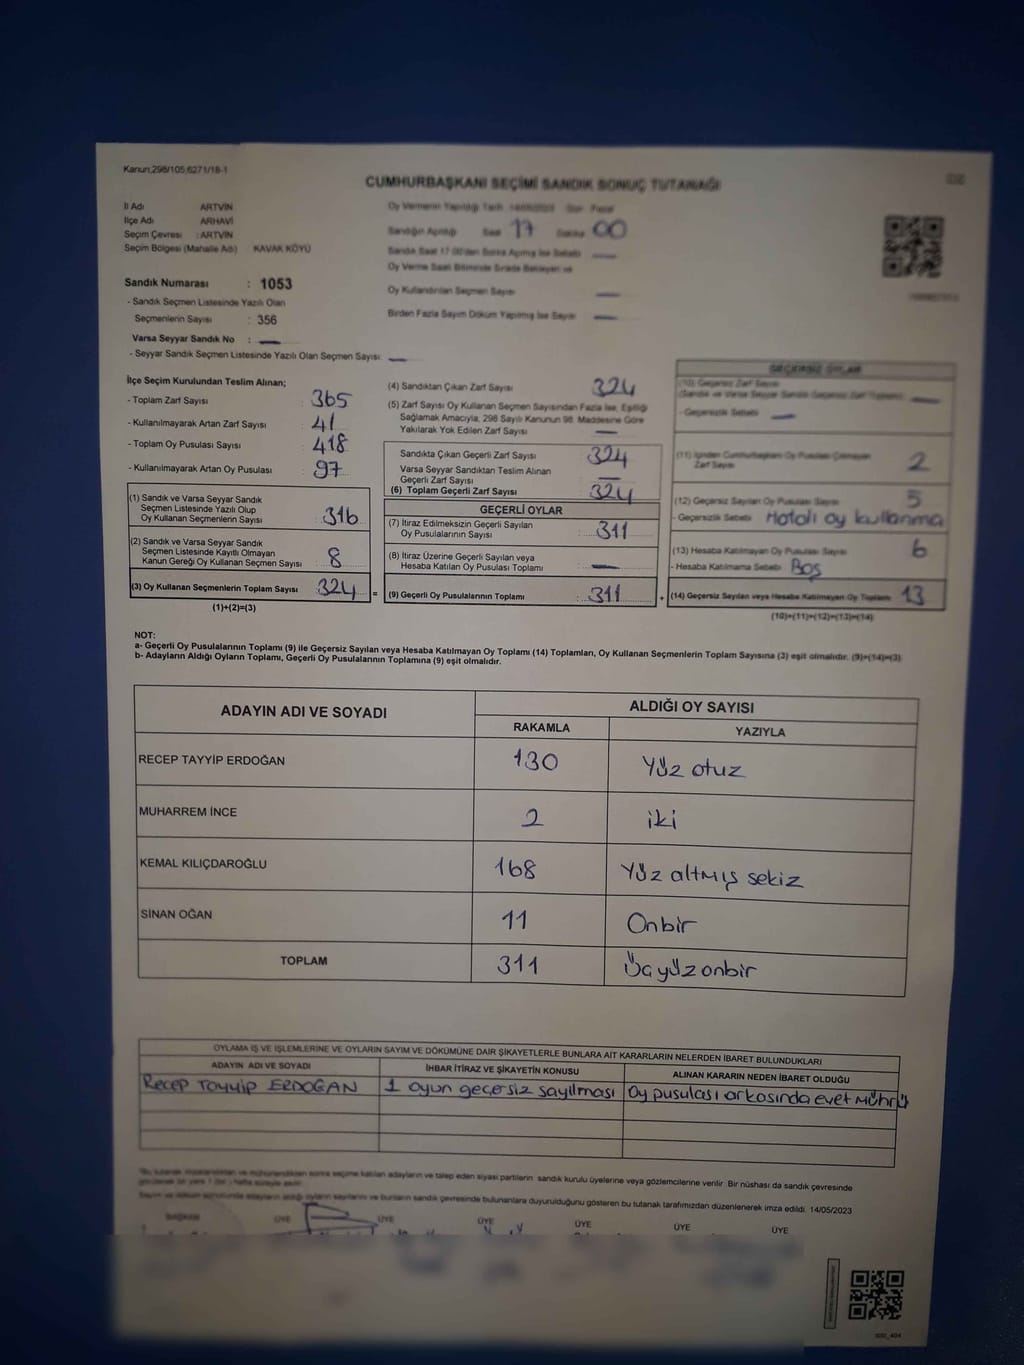 Kanun:298/105;6271/18-1
CUMHURBAŞKANI SEÇİMİ SANDIK SONUÇ TUTANAĞI
İl Adı ARTVİN
İlçe Adı ARHAVİ
Seçim Çevresi : ARTVİN
Seçim Bölgesi (Mahalle Adı) KAVAK KÖYÜ
Oy Vermenin Yapıldığı Tarih 14/05/2023 Gün Pazar
Sandığın Açıldığı Saat 17 Dakika 00
Sandık Saat 17:00'den Sonra Açılmış İse Sebebi —
Oy Verme Saati Bitiminde Sırada Bekleyen ve
Oy Kullandırılan Seçmen Sayısı —
Birden Fazla Sayım Döküm Yapılmış İse Sayısı —
Sandık Numarası : 1053
- Sandık Seçmen Listesinde Yazılı Olan
Seçmenlerin Sayısı : 356
Varsa Seyyar Sandık No : —
- Seyyar Sandık Seçmen Listesinde Yazılı Olan Seçmen Sayısı: —
İlçe Seçim Kurulundan Teslim Alınan;
- Toplam Zarf Sayısı : 365
- Kullanılmayarak Artan Zarf Sayısı : 41
- Toplam Oy Pusulası Sayısı : 418
- Kullanılmayarak Artan Oy Pusulası : 97
(1) Sandık ve Varsa Seyyar Sandık
Seçmen Listesinde Yazılı Olup
Oy Kullanan Seçmenlerin Sayısı : 316
(2) Sandık ve Varsa Seyyar Sandık
Seçmen Listesinde Kayıtlı Olmayan
Kanun Gereği Oy Kullanan Seçmen Sayısı : 8
(3) Oy Kullanan Seçmenlerin Toplam Sayısı : 324 =
(1)+(2)=(3)
(4) Sandıktan Çıkan Zarf Sayısı : 324
(5) Zarf Sayısı Oy Kullanan Seçmen Sayısından Fazla İse, Eşitliği
Sağlamak Amacıyla, 298 Sayılı Kanunun 98. Maddesine Göre
Yakılarak Yok Edilen Zarf Sayısı : —
Sandıkta Çıkan Geçerli Zarf Sayısı : 324
Varsa Seyyar Sandıktan Teslim Alınan
Geçerli Zarf Sayısı : —
(6) Toplam Geçerli Zarf Sayısı : 324
GEÇERLİ OYLAR
(7) İtiraz Edilmeksizin Geçerli Sayılan
Oy Pusulalarının Sayısı : 311
(8) İtiraz Üzerine Geçerli Sayılan veya
Hesaba Katılan Oy Pusulası Toplamı : —
(9) Geçerli Oy Pusulalarının Toplamı : 311 +
GEÇERSİZ OYLAR
(10) Geçersiz Zarf Sayısı
(Sandık ve Varsa Seyyar Sandık Geçersiz Zarf Toplamı) —
- Geçersizlik Sebebi —
(11) İçinden Cumhurbaşkanı Oy Pusulası Çıkmayan
Zarf Sayısı 2
(12) Geçersiz Sayılan Oy Pusulası Sayısı 5
- Geçersizlik Sebebi Hatalı oy kullanma
(13) Hesaba Katılmayan Oy Pusulası Sayısı 6
- Hesaba Katılmama Sebebi Boş
(14) Geçersiz Sayılan veya Hesaba Katılmayan Oy Toplamı 13
(10)+(11)+(12)+(13)=(14)
NOT:
a- Geçerli Oy Pusulalarının Toplamı (9) ile Geçersiz Sayılan veya Hesaba Katılmayan Oy Toplamı (14) Toplamları, Oy Kullanan Seçmenlerin Toplam Sayısına (3) eşit olmalıdır. (9)+(14)=(3)
b- Adayların Aldığı Oyların Toplamı, Geçerli Oy Pusulalarının Toplamına (9) eşit olmalıdır.
ADAYIN ADI VE SOYADI ALDIĞI OY SAYISI
RAKAMLA YAZIYLA
RECEP TAYYİP ERDOĞAN 130 Yüz otuz
MUHARREM İNCE 2 iki
KEMAL KILIÇDAROĞLU 168 Yüz altmış sekiz
SİNAN OĞAN 11 Onbir
TOPLAM 311 Üçyüzonbir
OYLAMA İŞ VE İŞLEMLERİNE VE OYLARIN SAYIM VE DÖKÜMÜNE DAİR ŞİKAYETLERLE BUNLARA AİT KARARLARIN NELERDEN İBARET BULUNDUKLARI
ADAYIN ADI VE SOYADI İHBAR İTİRAZ VE ŞİKAYETİN KONUSU ALINAN KARARIN NEDEN İBARET OLDUĞU
Recep Tayyip ERDOĞAN 1 oyun geçersiz sayılması Oy pusulası arkasında evet mührü
*Bu tutanak sonra seçime katılan adayların ve talep eden siyasi partilerin sandık kurulu üyelerine veya gözlemcilerine verilir. Bir nüshası da sandık çevresinde
bunların sandık çevresinde bulunanlara duyurulduğunu gösteren bu tutanak tarafımızdan düzenlenerek imza edildi. 14/05/2023
BAŞKAN ÜYE ÜYE ÜYE ÜYE ÜYE ÜYE